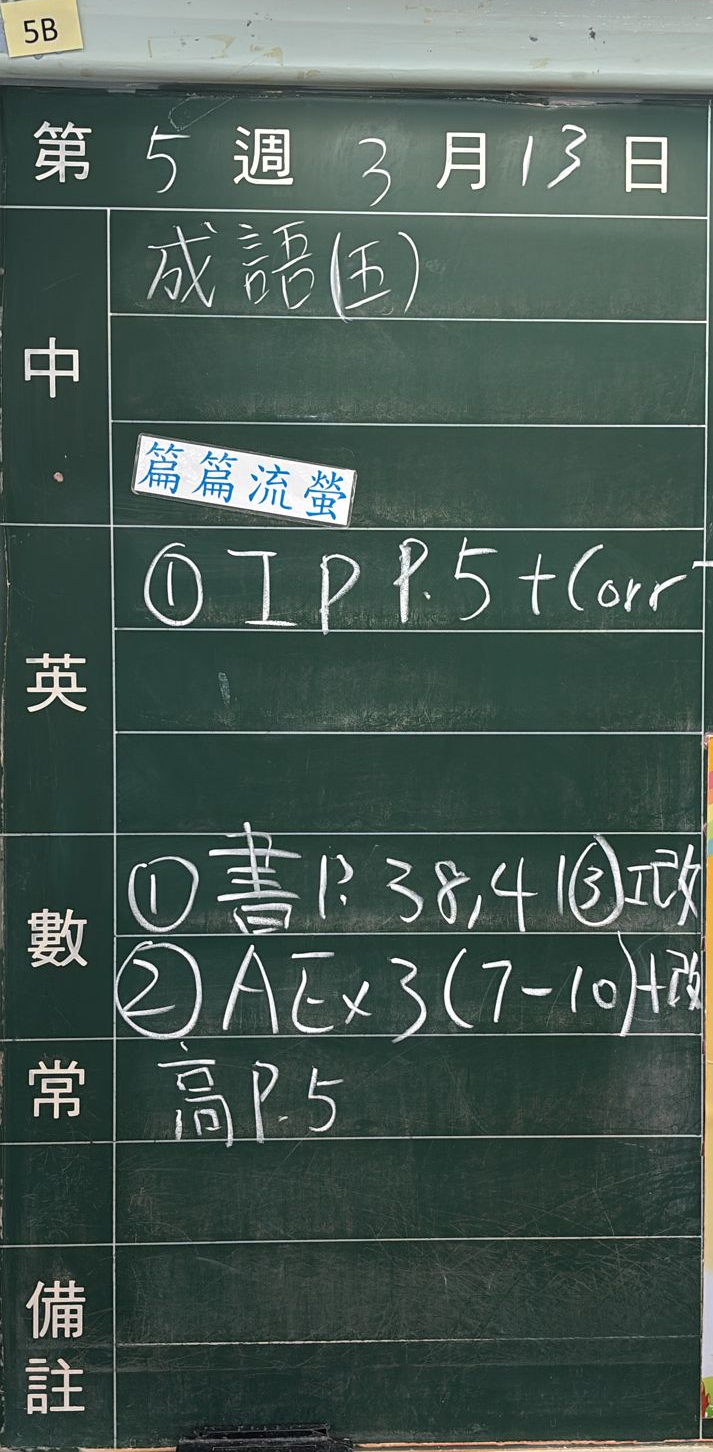 5B
第 5 週 3 月 13 日
中
成語(五)
篇篇流螢
英
① IP P.5 + Corr
數
① 書 P. 38, 41 ③ 工改
② AEx 3 (7-10) + 改
常
高 P.5
備註